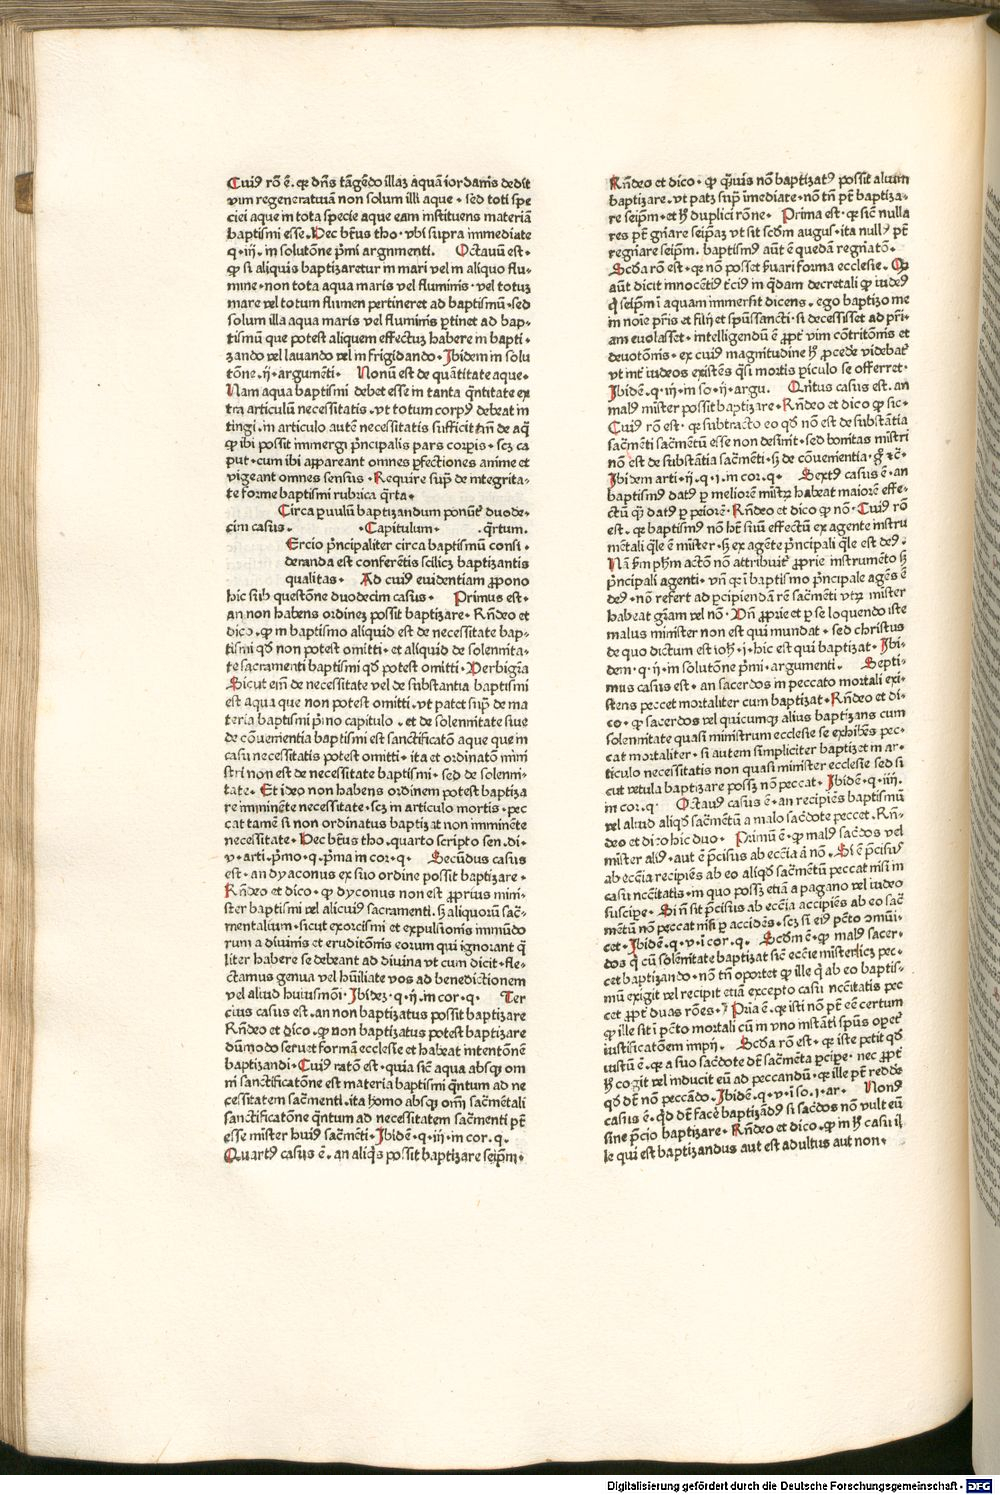 Cuiꝰ rõ ẽ. qꝛ dñs tãgẽdo illaꝫ aquã iordanis dedit
vim regeneratiuã non solum illi aque . sed toti spe
ciei aque in tota specie aque eam instituens materiã
baptismi esse. Hec bt̃us tho . vbi supra immediate
q . iij . in solutõne pͥmi argumenti. Octauũ est .
ꝙ si aliquis baptizaretur in mari vel in aliquo flu-
mine . non tota aqua maris vel fluminis . vel totuꝫ
mare vel totum flumen pertineret ad baptismũ . sed
solum illa aqua maris vel fluminis ꝑtinet ad bap-
tismũ que potest aliquem effectuꝫ habere in bapti .
zando vel lauando vel in frigidando . Ibidem in solu
tõne . ij . argumẽti . Nonũ est de quãtitate aque .
Nam aqua baptismi debet esse in tanta qͣntitate ex
tra articulũ necessitatis . vt totum corpꝰ debeat in
tingi . in articulo autẽ necessitatis sufficit tm̃ de aqͣ
ꝙ ibi possit immergi pͥncipalis pars corpis . scꝫ ca
put . cum ibi appareant omnes ꝑfectiones anime et
vigeant omnes sensus . Require supͣ de integrita-
te forme baptismi rubrica qͣrta .
Circa ꝑuulũ baptizandum ponũtͬ duode-
cim casus . Capitulum . . qͣrtum.
Ercio pͥncipaliter circa baptismũ consi .
deranda est conferẽtis scilicꝫ baptizantis
qualitas . Ad cuiꝰ euidentiam ꝓpono
hic sub questõne duodecim casus . Primus est .
an non habens ordineꝫ possit baptizare . Rñdeo et
dico . ꝙ in baptismo aliquid est de necessitate bap-
tismi qď non potest omitti . et aliquid de solennita-
te sacramenti baptismi qď potest omitti . Verbigr̃a
Sicut eiñ de necessitate vel de substantia baptismi
est aqua que non potest omitti . vt patet supͣ de ma
teria baptismi pͥmo capitulo . et de solennitate siue
de cõuenientia baptismi est sanctificatõ aque que in
casu necessitatis potest omitti . ita et ordinatõ mini
stri non est de necessitate baptismi . sed de solenni-
tate . Et ideo non habens ordinem potest baptiza
re imminẽte necessitate . scꝫ in articulo mortis . pec
cat tamẽ si non ordinatus baptizat non imminẽte
necessitate . Hec bt̃us tho . quarto scripto sen . di .
v . arti . pͥmo . q . pͥma in cor . q . Secũdus casus
est . an dyaconus ex suo ordine possit baptizare .
Rñdeo et dico . ꝙ dyconus non est ꝓprius mini-
ster baptismi vel alicuiꝰ sacramenti . sꝫ aliquorũ sac̃-
mentalium . sicut exorcismi et expulsionis immũdo
rum a diuinis et eruditõnis eorum qui ignorant qͣ
liter habere se debeant ad diuina vt cum dicit . fle-
ctamus genua vel hũiliate vos ad benedictionem
vel aliud huiusmõi . Ibideꝫ . q . ij . in cor . q . Ter
cius casus est . an non baptizatus possit baptizare
Rñdeo et dico . ꝙ non baptizatus potest baptizare
dũmodo seruet formã ecclesie et habeat intentõnẽ
baptizandi . Cuiꝰ ratõ est . quia sic̃ aqua absqꝫ om
ni sanctificatõne est materia baptismi qͣntum ad ne
cessitatem sac̃menti . ita homo absqꝫ om̃i sac̃mẽtali
sanctificatõne qͣntum ad necessitatem sac̃menti pt̃
esse mister huiꝰ sac̃mẽti . Ibidẽ . q . iij . in cor . q .
Quartꝰ casus ẽ . an aliqͥs possit baptizare seipm̃ .
Rñdeo et dico . ꝙ qͣmuis nõ baptizatꝰ possit alium
baptizare . vt patꝫ supͣ imediate . nõ tñ pt̃ baptiza-
re seipm̃ . et hͦ duplici rõne . Prima est . qꝛ sic̃ nulla
res pt̃ gñare seipãꝫ vt sit scďm augus . ita nullꝰ pt̃
regñare seipm̃ . baptismꝰ aũt ẽ quedã regñatõ .
Scďa rõ est . qꝛ nõ posset ẜuari forma ecclesie . Qꝛ
aũt dicit innocẽtiꝰ tͥciꝰ in qͣdam decretali ꝙ iudeꝰ
qͥ seipm̃ ĩ aquam immersit dicens . ego baptizo me
in noĩe pr̃is et filij et spũssancti . si decessisset ad pr̃i-
am euolasset . intelligendũ ẽ ꝓpt̃ vim cõtritõnis et
deuotõnis . ex cuiꝰ magnitudine hͦ ꝓceďe videbatͬ
vt int̃ iudeos existẽs qͣsi mortis ꝑiculo se offerret .
Ibidẽ . q . iij . in so . ij . argu . Qn̄tus casus est . an
malꝰ mister possit baptizare . Rñdeo et dico ꝙ sic .
Cuiꝰ rõ est . qꝛ subtracto eo qď nõ est de substãtia
sac̃mẽti sac̃mẽtũ esse non desinit . sed bonitas mĩstri
nõ est de substãtia sac̃mẽti . sꝫ de cõuenientia . gͦ ⁊c̃ .
Ibidem arti . ij . q . i . in cor . q . Sextꝰ casus ẽ . an
baptismꝰ datꝰ ꝑ meliorẽ mĩstrꝫ habeat maiorẽ effe-
ctũ qͣ datꝰ ꝑ peiorẽ . Rñdeo et dico ꝙ nõ . Cuiꝰ rõ
est . qꝛ baptismꝰ nõ hꝫ suũ effectũ ex agente instru
mẽtali qͣle ẽ mĩster . sꝫ ex agẽte pͥncipali qͣle est deꝰ .
Nã ẜm phm̃ actõ nõ attribuitͬ ꝓprie instrumẽto sꝫ
pͥncipali agenti . vñ qꝛ ĩ baptismo pͥncipale agẽs ẽ
deꝰ . nõ refert ad ꝑcipiendã rẽ sac̃mẽti vtrꝫ mister
habeat gr̃am vel nõ . Vñ ꝓprie et ꝑ se loquendo iste
malus minister non est qui mundat . sed christus
de quo dictum est ioh̃ . i . hic est qui baptizat . Ibi-
dem . q . ij . in solutõne pͥmi . argumenti . Septi-
mus casus est . an sacerdos in peccato mortali exi-
stens peccet mortaliter cum baptizat . Rñdeo et di-
co . ꝙ sacerdos vel quicumqꝫ alius baptizans cum
solennitate quasi ministrum ecclesie se exhibẽs pec-
cat mortaliter . si autem simpliciter baptizet in ar-
ticulo necessitatis non quasi minister ecclesie sed si
cut vetula baptizare possꝫ nõ peccat . Ibidẽ . q . iiij .
in cor . q . Octauꝰ casus ẽ . an recipiẽs baptismũ
vel aliud aliqď sac̃mẽtũ a malo sac̃dote peccet . Rñ-
deo et dico hic duo . Primũ ẽ . ꝙ malꝰ sac̃dos vel
mĩster aliꝰ . aut ẽ pͥcisus ab ecc̃ia ã nõ . Si ẽ pͥcisus
ab ecc̃ia recipiẽs ab eo aliqď sac̃mẽtũ peccat nisi in
casu nc̃cĩtatis . in quo possꝫ etiã a pagano vel iudeo
suscipe . Si ñ sit pͥcisus ab ecc̃ia accipiẽs ab eo sac̃
mẽtũ nõ peccat nisi ꝑ accidẽs . scꝫ si eiꝰ pc̃to cõmũi-
cet . Ibidẽ . q . v . ĩ cor . q . Scďm ẽ . ꝙ malꝰ sacer-
dos qͥ cũ solẽnitate baptizat sic̃ ecc̃ie mĩster licꝫ pec-
cet baptizando . nõ tñ oportet ꝙ ille qͥ ab eo baptis-
mũ exigit vel recipit etiã excepto casu nc̃cĩtatis pec
cet ꝓpt̃ duas rões . Prĩa ẽ . qꝛ isti nõ pt̃ eẽ certum
ꝙ ille sit ĩ pc̃to mortali cũ in vno instãti spũs opetͬ
iustificatõem impij . Scďa rõ est . qꝛ iste petit qď
iustũ ẽ . qꝛ a suo sac̃dote dꝫ sac̃mẽta ꝑcipe . nec ꝓpt̃
hͦ cogit vel inducit eũ ad peccandũ . qꝛ ille pt̃ redďe
qď dꝫ nõ peccãdo . Ibidẽ . q . v . ĩ so . i . ar . Nonꝰ
casus ẽ . qͥd dꝫ facẽ baptizãdꝰ si sac̃dos nõ vult eũ
sine pͥcio baptizare . Rñdeo et dico . ꝙ in hͦ casu il
le qui est baptizandus aut est adultus aut non .
Digitalisierung gefördert durch die Deutsche Forschungsgemeinschaft - DFG